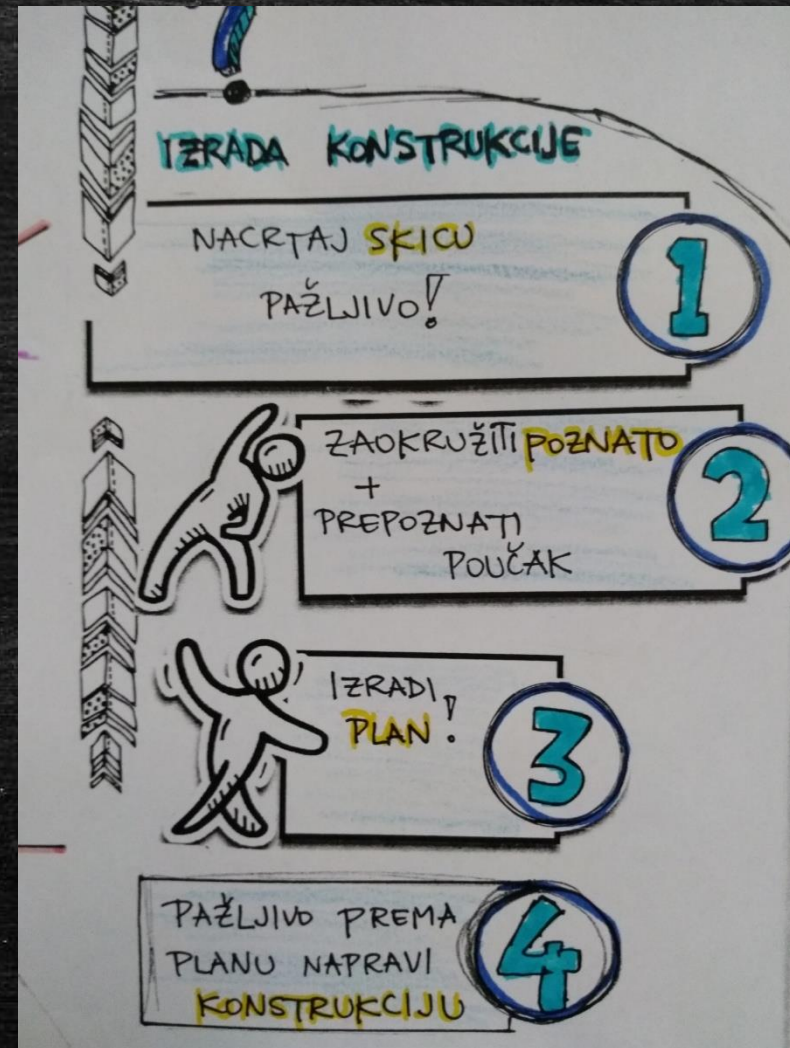 IZRADA KONSTRUKCIJE
NACRTAJ SKICU
PAŽLJIVO!
1
ZAOKRUŽITI POZNATO
+
PREPOZNATI
POUČAK
2
IZRADI
PLAN!
3
PAŽLJIVO PREMA
PLANU NAPRAVI
KONSTRUKCIJU
4